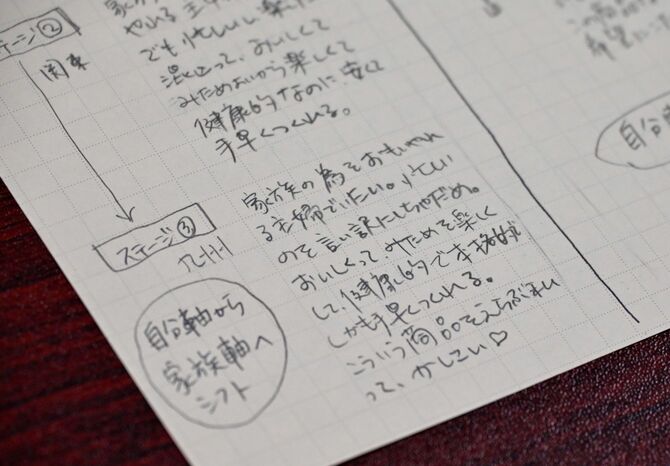 ステージ②
関東
でも忙しい
混ざって、おいしくて
みためもいいから楽しくて
健康的なのに安くて
手早くつくれる。
ステージ③
九州
自分軸から
家族軸へ
シフト
家族の為をおもいやれ
る主婦でいたい。忙しい
のを言い訳にしちゃだめ。
おいしくって、みためも楽しく
して、健康的で本格的で
しかも手早くつくれる。
こういう商品をえらぶわたし
って、かしこい♡
この商品
自分